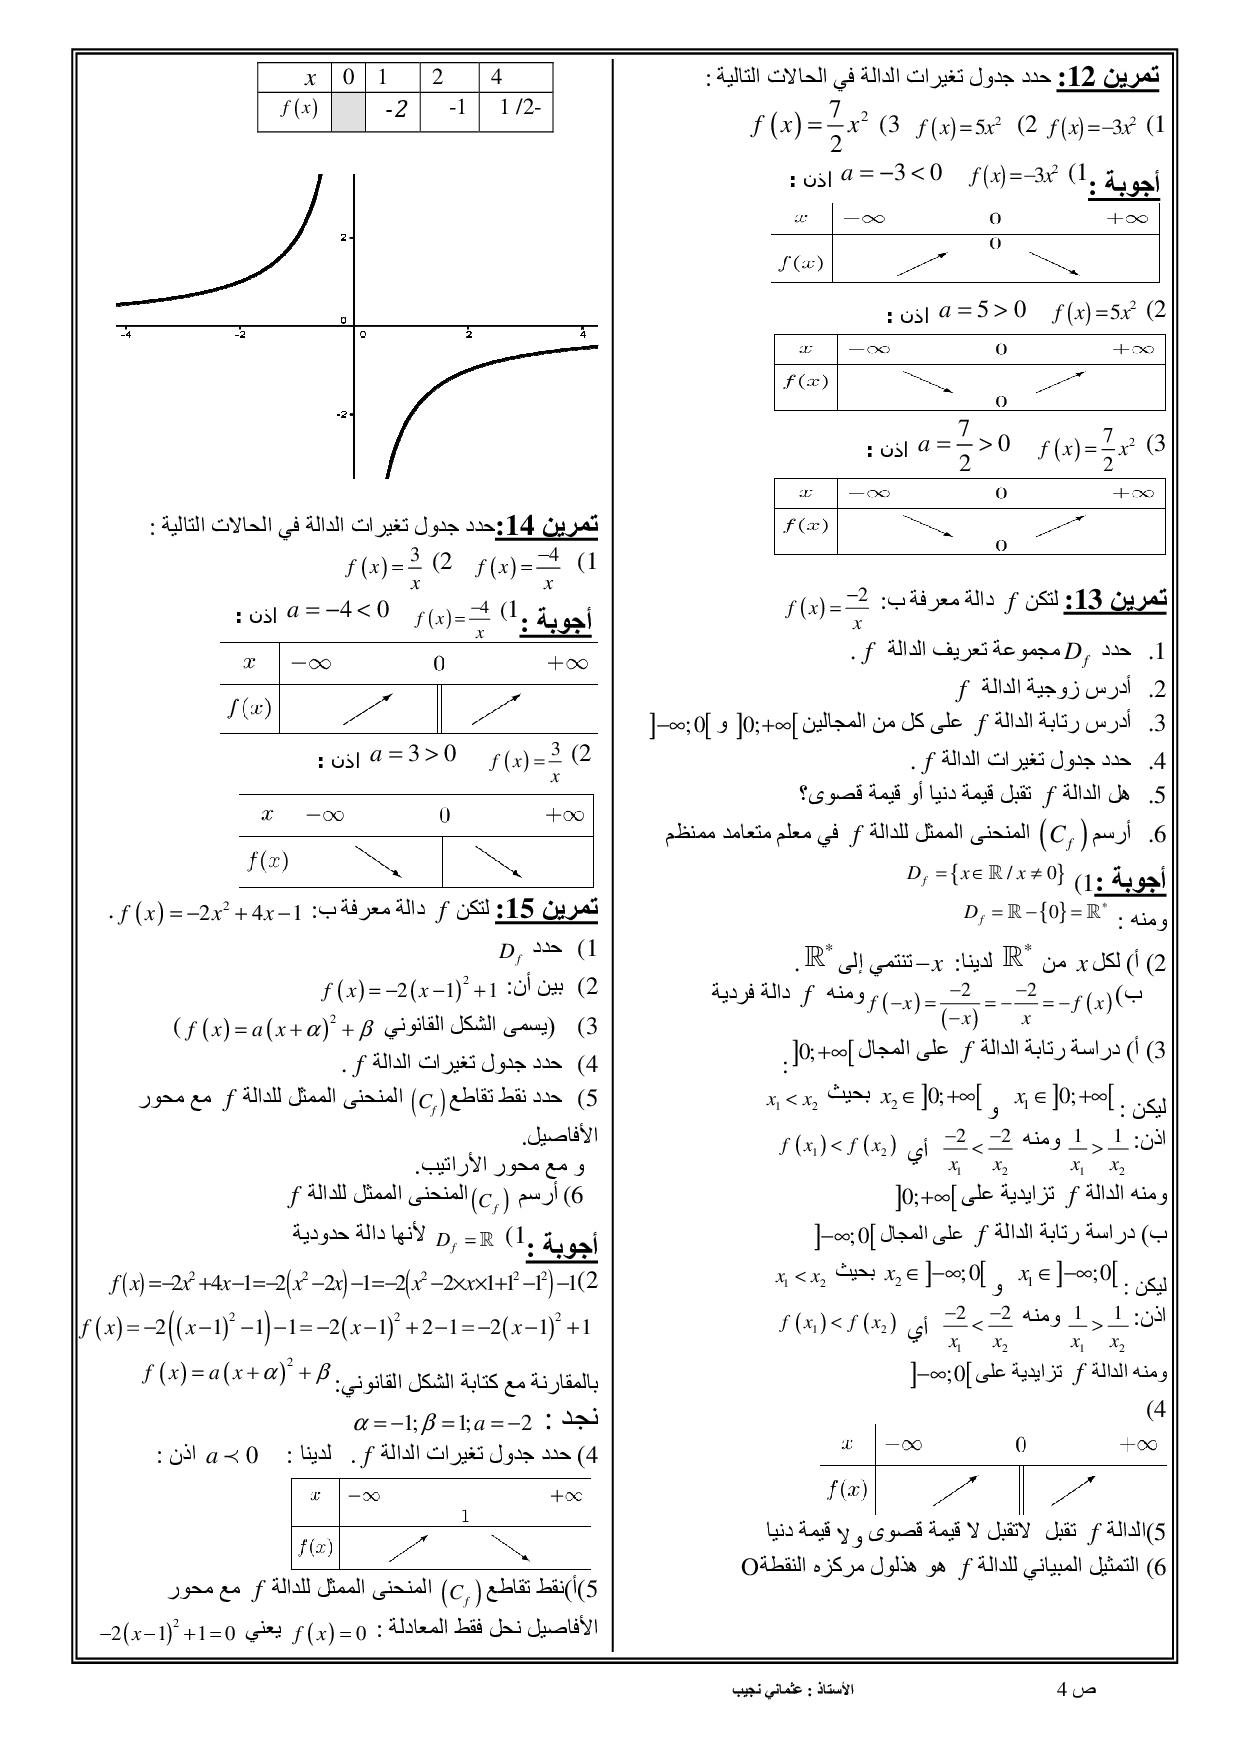 تمرين 12: حدد جدول تغيرات الدالة في الحالات التالية :
1) f(x)=−3x² 2) f(x)=5x² 3) f(x)=7/2 x²
أجوبة : 1) f(x)=−3x² a=−3<0 اذن :
x −∞ 0 +∞
0
f(x)
2) f(x)=5x² a=5>0 اذن :
x −∞ 0 +∞
f(x)
0
3) f(x)=7/2 x² a=7/2>0 اذن :
x −∞ 0 +∞
f(x)
0
تمرين 13: لتكن f دالة معرفة ب: f(x)=−2/x
1. حدد D_f مجموعة تعريف الدالة f .
2. أدرس زوجية الدالة f
3. أدرس رتابة الدالة f على كل من المجالين ]0;+∞[ و ]−∞;0[
4. حدد جدول تغيرات الدالة f .
5. هل الدالة f تقبل قيمة دنيا أو قيمة قصوى؟
6. أرسم (C_f) المنحنى الممثل للدالة f في معلم متعامد ممنظم
أجوبة : 1) D_f={x∈ℝ/x≠0}
ومنه : D_f=ℝ−{0}=ℝ*
2) أ) لكل x من ℝ* لدينا: −x تنتمي إلى ℝ* .
ب) f(−x)=−2/(−x)=−−2/x=−f(x) ومنه f دالة فردية
3) أ) دراسة رتابة الدالة f على المجال ]0;+∞[ :
ليكن : x₁∈]0;+∞[ و x₂∈]0;+∞[ بحيث x₁<x₂
اذن: 1/x₁>1/x₂ ومنه −2/x₁<−2/x₂ أي f(x₁)<f(x₂)
ومنه الدالة f تزايدية على ]0;+∞[
ب) دراسة رتابة الدالة f على المجال ]−∞;0[
ليكن : x₁∈]−∞;0[ و x₂∈]−∞;0[ بحيث x₁<x₂
اذن: 1/x₁>1/x₂ ومنه −2/x₁<−2/x₂ أي f(x₁)<f(x₂)
ومنه الدالة f تزايدية على ]−∞;0[
4)
x −∞ 0 +∞
f(x)
5)الدالة f تقبل لاتقبل لا قيمة قصوى ولا قيمة دنيا
6) التمثيل المبياني للدالة f هو هذلول مركزه النقطةO
x 0 1 2 4
f(x) -2 -1 -1/2
2
0
-4 -2 0 2 4
-2
تمرين 14:حدد جدول تغيرات الدالة في الحالات التالية :
1) f(x)=−4/x 2) f(x)=3/x
أجوبة : 1) f(x)=−4/x a=−4<0 اذن :
x −∞ 0 +∞
f(x)
2) f(x)=3/x a=3>0 اذن :
x −∞ 0 +∞
f(x)
تمرين 15: لتكن f دالة معرفة ب: f(x)=−2x²+4x−1 .
1) حدد D_f
2) بين أن: f(x)=−2(x−1)²+1
3) (يسمى الشكل القانوني f(x)=a(x+α)²+β )
4) حدد جدول تغيرات الدالة f .
5) حدد نقط تقاطع (C_f) المنحنى الممثل للدالة f مع محور
الأفاصيل.
و مع محور الأراتيب.
6) أرسم (C_f) المنحنى الممثل للدالة f
أجوبة : 1) D_f=ℝ لأنها دالة حدودية
2) f(x)=−2x²+4x−1=−2(x²−2x)−1=−2(x²−2×x×1+1²−1²)−1
f(x)=−2((x−1)²−1)−1=−2(x−1)²+2−1=−2(x−1)²+1
بالمقارنة مع كتابة الشكل القانوني: f(x)=a(x+α)²+β
نجد : α=−1;β=1;a=−2
4) حدد جدول تغيرات الدالة f . لدينا : a≺0 اذن :
x −∞ +∞
1
f(x)
5)أ)نقط تقاطع (C_f) المنحنى الممثل للدالة f مع محور
الأفاصيل نحل فقط المعادلة : f(x)=0 يعني −2(x−1)²+1=0
ص 4 الأستاذ : عثماني نجيب